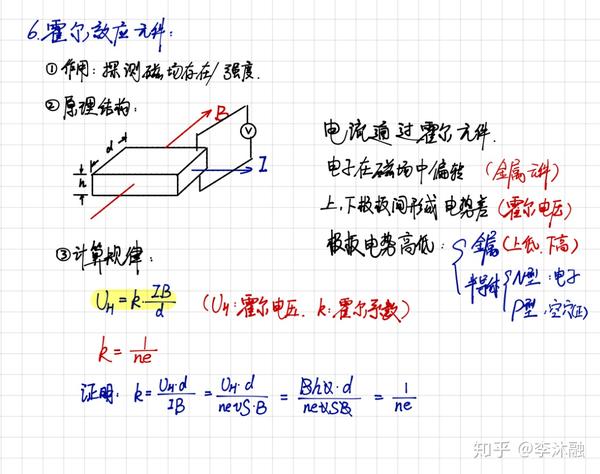 6.霍尔效应元件:
①作用:探测磁场存在/强度.
②原理结构:
B
V
d
I
h
电流通过霍尔元件.
电子在磁场中偏转 (金属元件)
上、下极板间形成电势差(霍尔电压)
极板电势高低: { 金属(上低、下高)
半导体 { N型:电子
P型:空穴(正)
③计算规律:
U_H = k·IB/d (U_H:霍尔电压、k:霍尔系数)
k = 1/ne
证明: k = U_H·d/IB = U_H·d/nevS·B = Bhv·d/nevSB = 1/ne
知乎 @李沐融